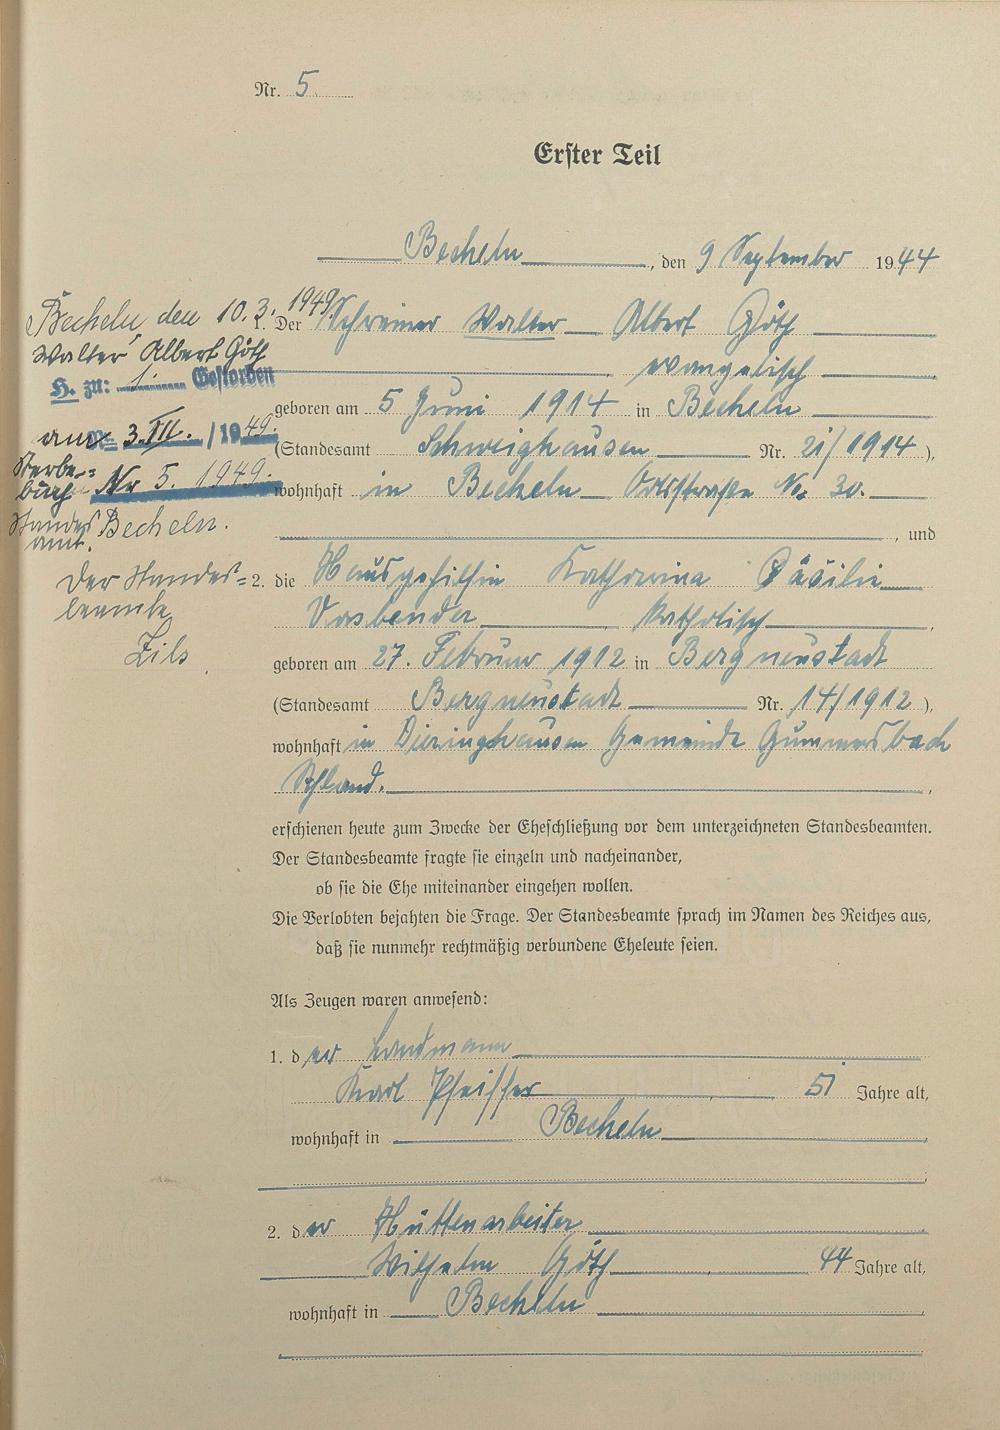 Nr. 5.
Erster Teil
Becheln, den 9 September 1944
Becheln den 10. 3. 1949.
Walter Albert Göth
H. zu: 1. Gestorben
am 3. III. / 1949.
Sterbe-
buch Nr 5. 1949.
Standes Becheln.
amt.
Der Standes=
beamte
Zils
1. Der Schreiner Walter Albert Göth
evangelisch
geboren am 5 Juni 1914 in Becheln
(Standesamt Schweighausen Nr. 21/1914),
wohnhaft in Becheln Ortsstraße No. 30.
, und
2. die Hausgehilfin Katharina Cäcilie
Vasbender, katholisch,
geboren am 27. Februar 1912 in Bergneustadt
(Standesamt Bergneustadt Nr. 14/1912),
wohnhaft in Dieringhausen Gemeinde Gummersbach
Rhland.,
erschienen heute zum Zwecke der Eheschließung vor dem unterzeichneten Standesbeamten.
Der Standesbeamte fragte sie einzeln und nacheinander,
ob sie die Ehe miteinander eingehen wollen.
Die Verlobten bejahten die Frage. Der Standesbeamte sprach im Namen des Reiches aus,
daß sie nunmehr rechtmäßig verbundene Eheleute seien.
Als Zeugen waren anwesend:
1. der Landmann
Karl Pfeiffer, 51 Jahre alt,
wohnhaft in Becheln
2. der Hüttenarbeiter
Wilhelm Göth, 44 Jahre alt,
wohnhaft in Becheln